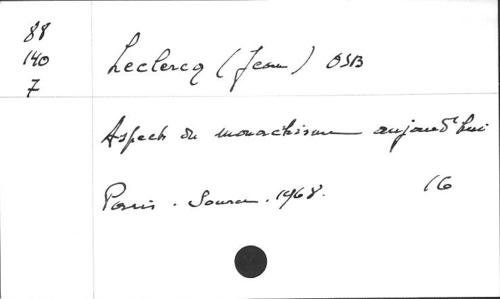 88
140
7
Leclercq (Jean) OSB
Aspects du monachisme aujourd'hui
Paris. Source. 1968. 16